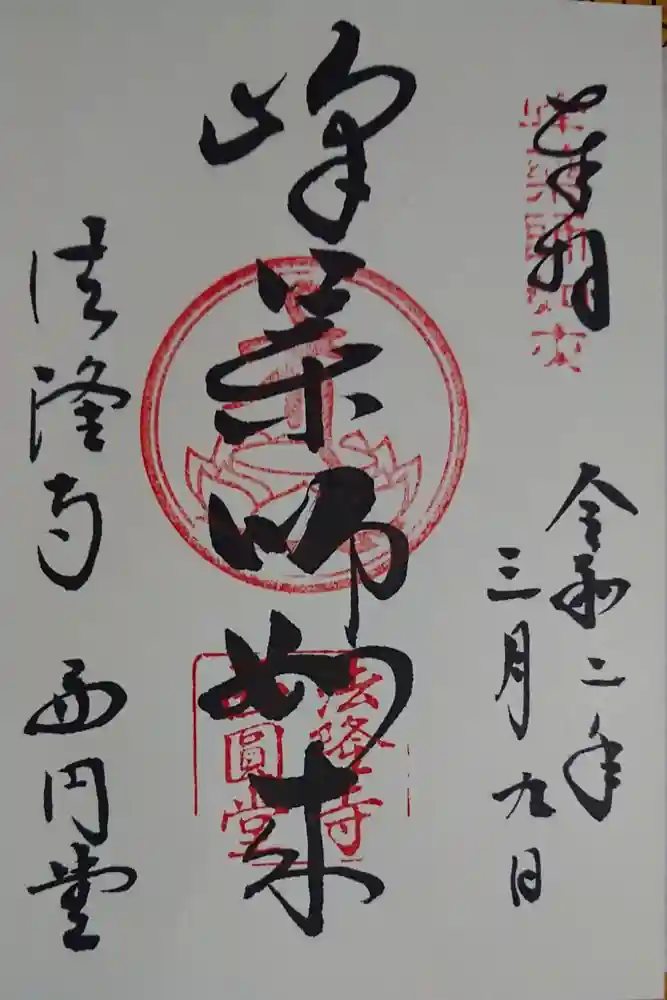 奉拝
令和二年
三月九日
峰薬師如来
法隆寺
西圓堂
法隆寺 西円堂